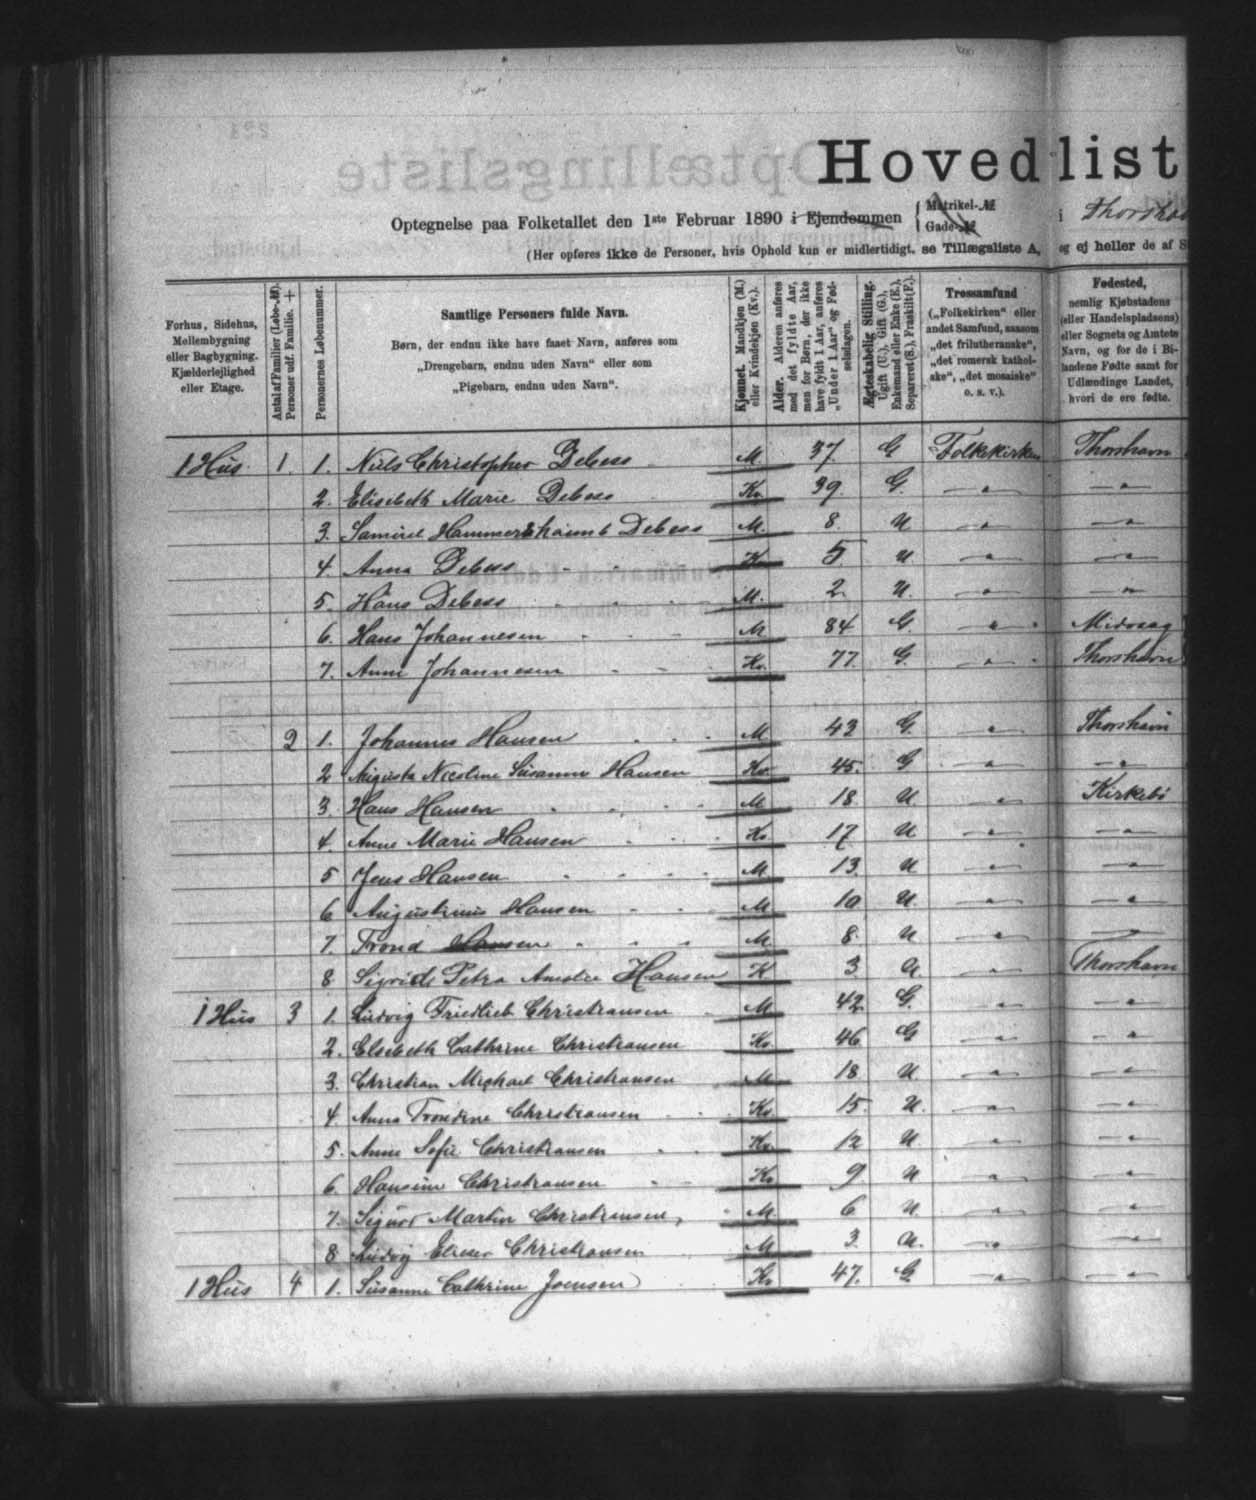 Hovedlist
Optegnelse paa Folketallet den 1ste Februar 1890 i Ejendommen { Matrikel-№ Gade-№ i Thorshav
(Her opføres ikke de Personer, hvis Ophold kun er midlertidigt, se Tillægsliste A, og ej heller de af S
Forhus, Sidehus, Mellembygning eller Bagbygning. Kjælderlejlighed eller Etage.
Antal af Familier (Løbe-№). Personer udf. Familie. +
Personernes Løbenummer.
Samtlige Personers fulde Navn.
Børn, der endnu ikke have faaet Navn, anføres som
„Drengebarn, endnu uden Navn“ eller som
„Pigebarn, endnu uden Navn“.
Kjønnet. Mandkjøn (M.) eller Kvindekjøn (Kv.).
Alder. Alderen anføres med det fyldte Aar, men for Børn, der ikke have fyldt 1 Aar, anføres „Under 1 Aar“ og Fødselsdagen.
Ægteskabelig Stilling. Ugift (U.), Gift (G.), Enkemand eller Enke (E.), Separeret (S.), Fraskilt (F.).
Trossamfund („Folkekirken“ eller andet Samfund, saasom „det frilutheranske“, „det romersk katholske“, „det mosaiske“ o. s. v.).
Fødested, nemlig Kjøbstadens (eller Handelspladsens) eller Sognets og Amtets Navn, og for de i Bilandene Fødte samt for Udlændinge Landet, hvori de ere fødte.
1 Hus 1. 1. Niels Christopher Debess M. 37. G Folkekirken Thorshavn
2. Elisebeth Marie Debess Kv. 39. G. — " — — " —
3. Samuel Hammershaimb Debess M. 8. U — " — — " —
4. Anna Debess Kv. 5. U — " — — " —
5. Hans Debess M. 2. U. — " — — " —
6. Hans Johannesen M 84 G. — " — Midvaag
7. Anne Johannesen Kv. 77. G. — " — Thorshavn
2 1. Johannes Hansen M. 43 G. — " — Thorshavn
2 Augusta Nicoline Susanne Hansen Kv. 45. G — " — — " —
3. Hans Hansen M 18. U — " — Kirkebö
4. Anne Marie Hansen Kv 17 U — " — — " —
5 Jens Hansen M. 13. U — " — — " —
6 Augustinus Hansen M 10 U. — " — — " —
7. Trond Hansen M 8. U — " — —
8 Sigride Petra Amalie Hansen K 3. U. — " — Thorshavn
1 Hus 3 1. Ludvig Friedlieb Christiansen M 42. G. — " — — " —
2. Elsebeth Cathrine Christiansen Kv. 46 G — " — — " —
3. Christian Michael Christiansen M 18. U. — " — — " —
4. Anna Trondine Christiansen Kv 15. U. — " — — " —
5. Anne Sofie Christiansen Kv. 12 U. — " — — " —
6. Hansine Christiansen Kv 9. U — " — — " —
7. Sigurd Martin Christiansen, M. 6 U — " — — " —
8. Ludvig Christiansen M 3. U. — " — — " —
1 Hus 4 1. Susanne Cathrine Joensen Kv 47. G — " — — " —